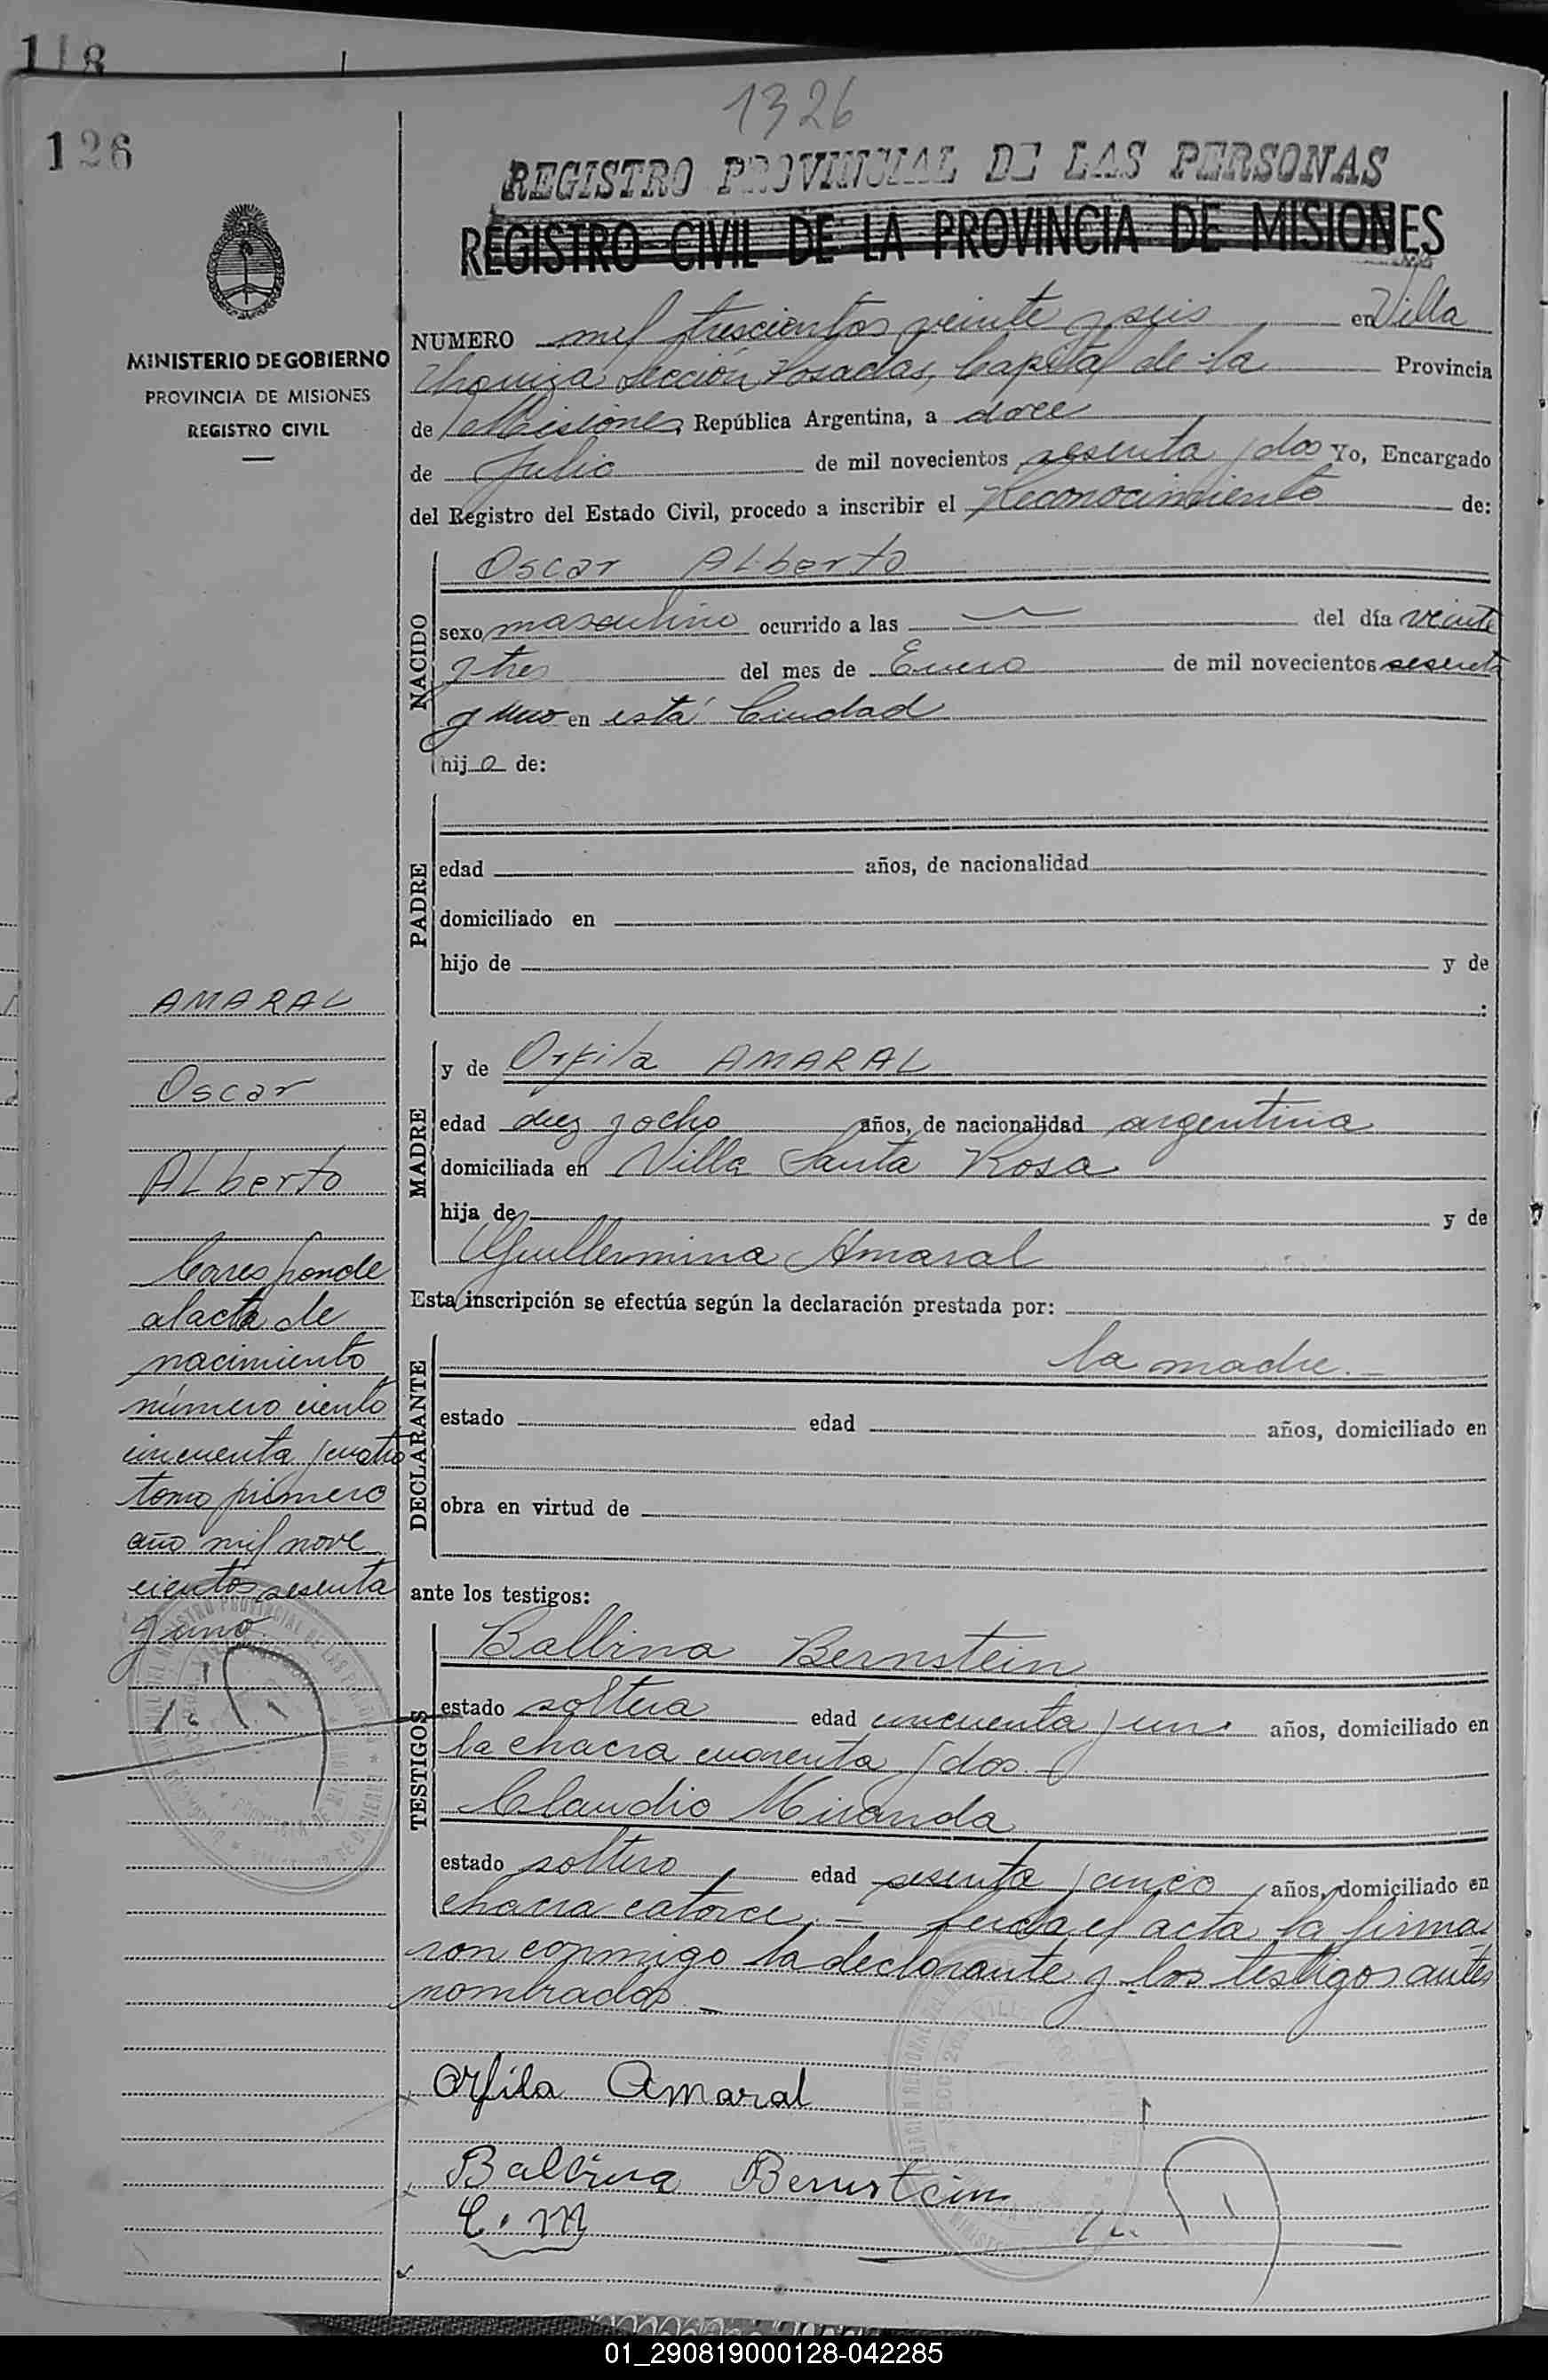 118
126
1326
REGISTRO PROVINCIAL DE LAS PERSONAS
REGISTRO CIVIL DE LA PROVINCIA DE MISIONES
MINISTERIO DE GOBIERNO
PROVINCIA DE MISIONES
REGISTRO CIVIL
NUMERO mil trescientos veinte y seis en Villa
Urquiza Sección Posadas, Capital de la Provincia
de Misiones, República Argentina, a doce
de Julio de mil novecientos sesenta y dos Yo, Encargado
del Registro del Estado Civil, procedo a inscribir el Reconocimiento de:
NACIDO
Oscar Alberto
sexo masculino ocurrido a las del día veinte
y tres del mes de Enero de mil novecientos sesenta
y uno en está Ciudad
hijo de:
PADRE
edad años, de nacionalidad
domiciliado en
hijo de y de
:
MADRE
y de Orfila AMARAL
edad diez y ocho años, de nacionalidad argentina
domiciliada en Villa Santa Rosa
hija de y de
Guillermina Amaral
Esta inscripción se efectúa según la declaración prestada por:
DECLARANTE
la madre.-
estado edad años, domiciliado en
obra en virtud de
ante los testigos:
TESTIGOS
Balbina Bernstein
estado soltera edad cincuenta y un años, domiciliado en
la chacra cuarenta y dos.-
Claudio Miranda
estado soltero edad sesenta y cinco años, domiciliado en
chacra catorce.- Leida el acta la firma
ron conmigo la declarante y los testigos antes
nombrados.-
AMARAL
Oscar
Alberto
Corresponde
al acta de
nacimiento
número ciento
cincuenta y cuatro
tomo primero
año mil nove
cientos sesenta
y uno.
Orfila Amaral
Balbina Bernstein
C. M
01_290819000128-042285